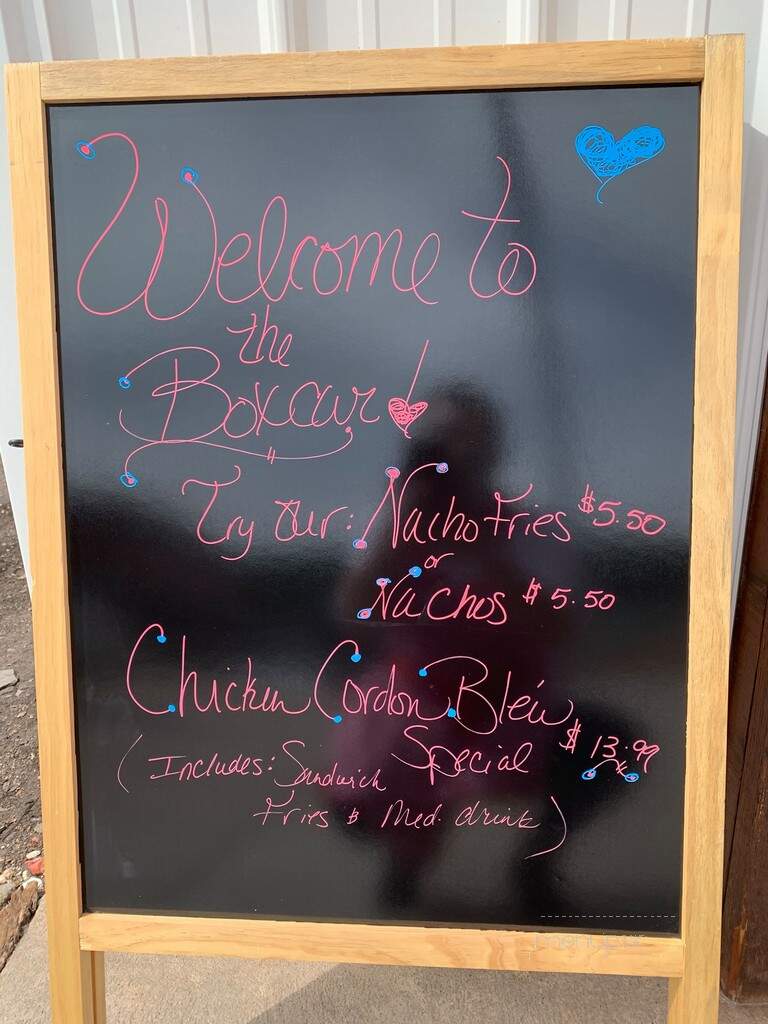 Welcome to
the
Boxcar!
Try Our: Nacho Fries $5.50
or
Nachos $5.50
Chicken Cordon Bleu
Special $13.99
(Includes: Sandwich
Fries & Med. drink)